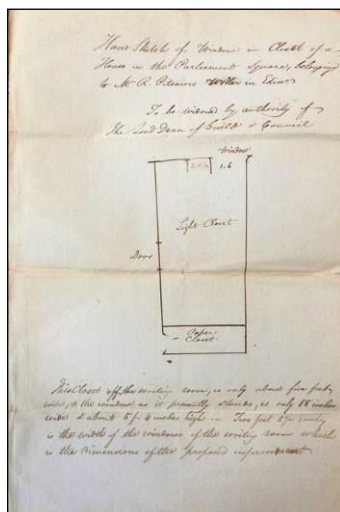 Hand Sketch of Window in Closet of a
House in the Parliament Square, belonging
to Mr R. Paterson in Edinr
To be widened by authority of
The Lord Dean of Guild & Council
Window
1.6
Light Closet
Door
Paper
Closet
This Closet off the writing room, is only about five feet
wide, & the window as it presently stands, is only 18 inches
wide & about 5 f. 4 inches high in Two feet
is the width of the windows of the writing room which
is the dimensions of the proposed improvement